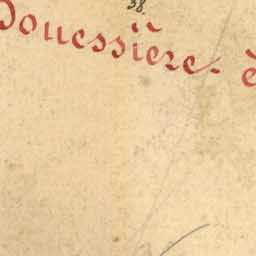 38.
Douessière - è